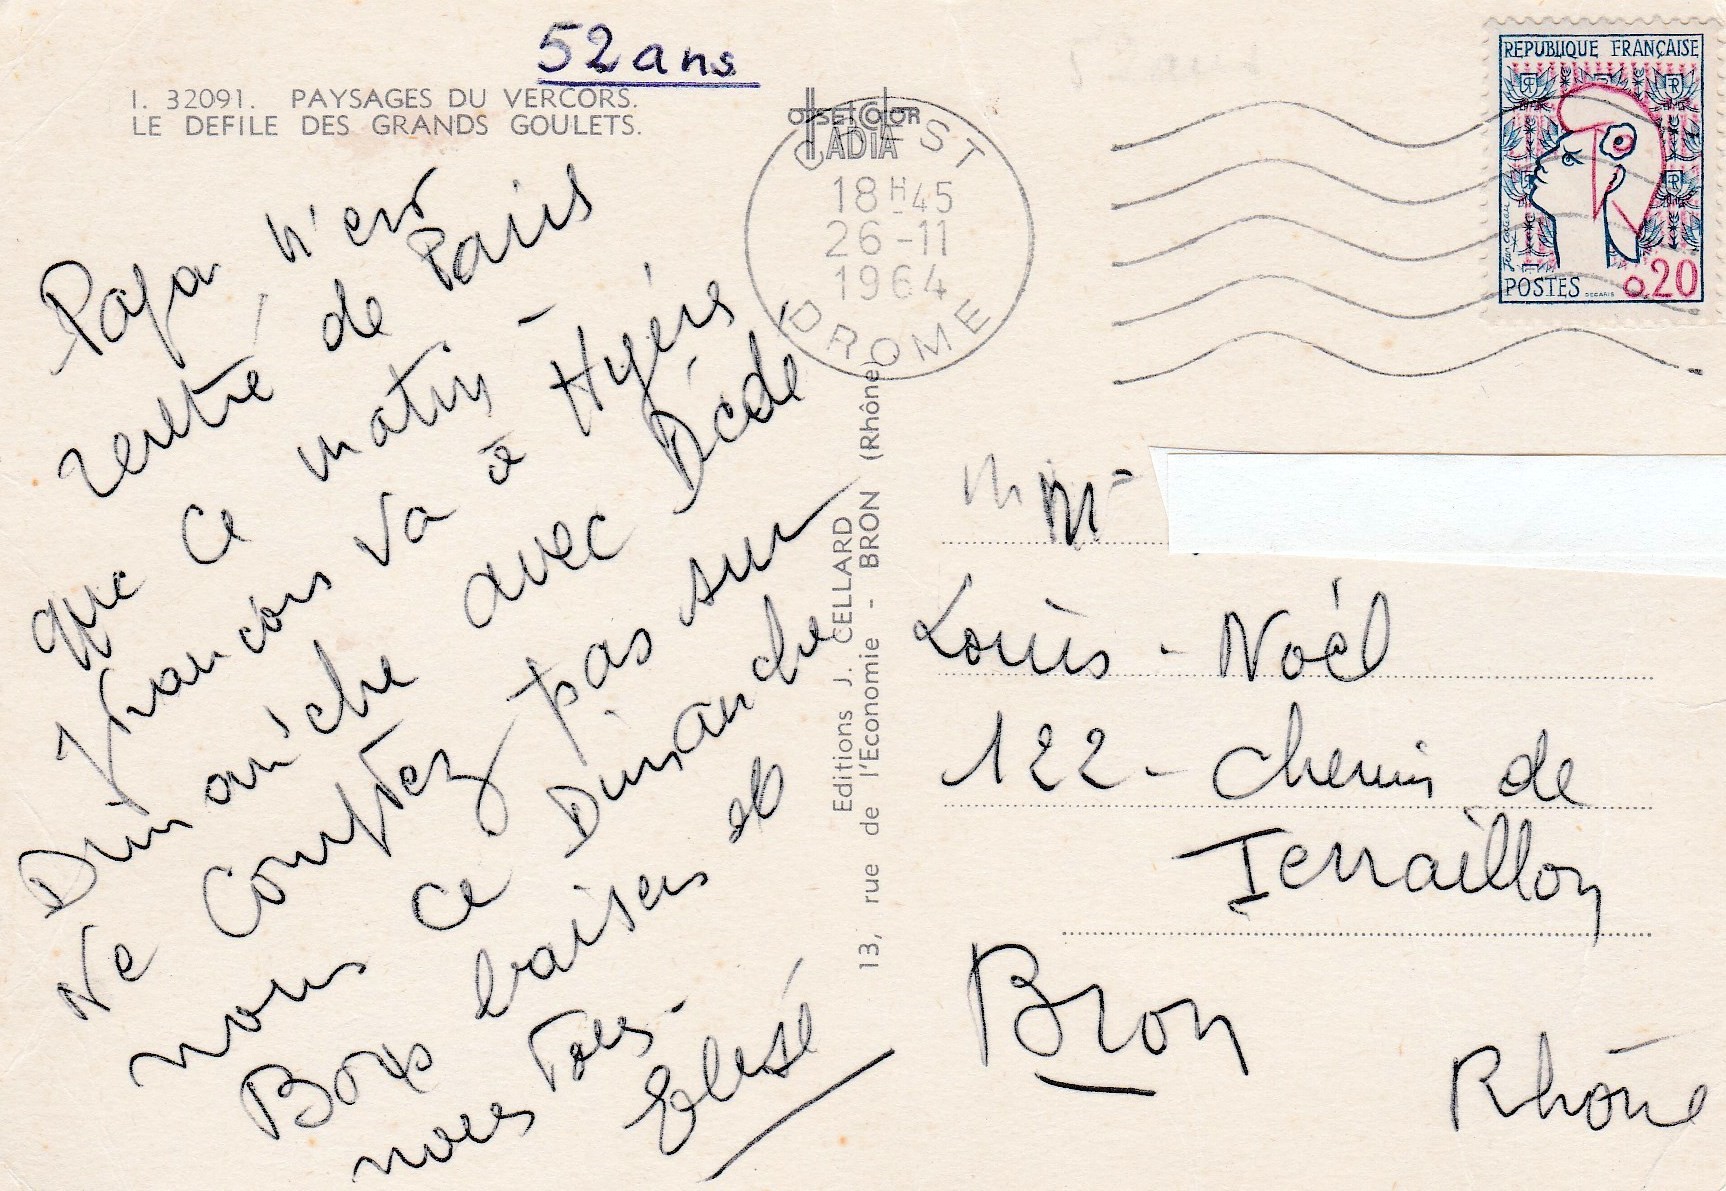 52 ans
I. 32091. PAYSAGES DU VERCORS.
LE DEFILE DES GRANDS GOULETS.
OFFSET COLOR
IADIA
CREST
18H45
26-11
1964
DROME
REPUBLIQUE FRANÇAISE
Jean Cocteau
POSTES DECARIS 0,20
Papa n'est
rentré de Paris
que ce matin -
François va à Hyères
Dimanche avec Dédé
Ne comptez pas sur
nous ce Dimanche
Bons baisers et
nous tous.
Editions J. CELLARD
13, rue de l'Economie - BRON (Rhône)
M Mme
Louis-Noël
122- chemin de
Terraillon
Bron
Rhône